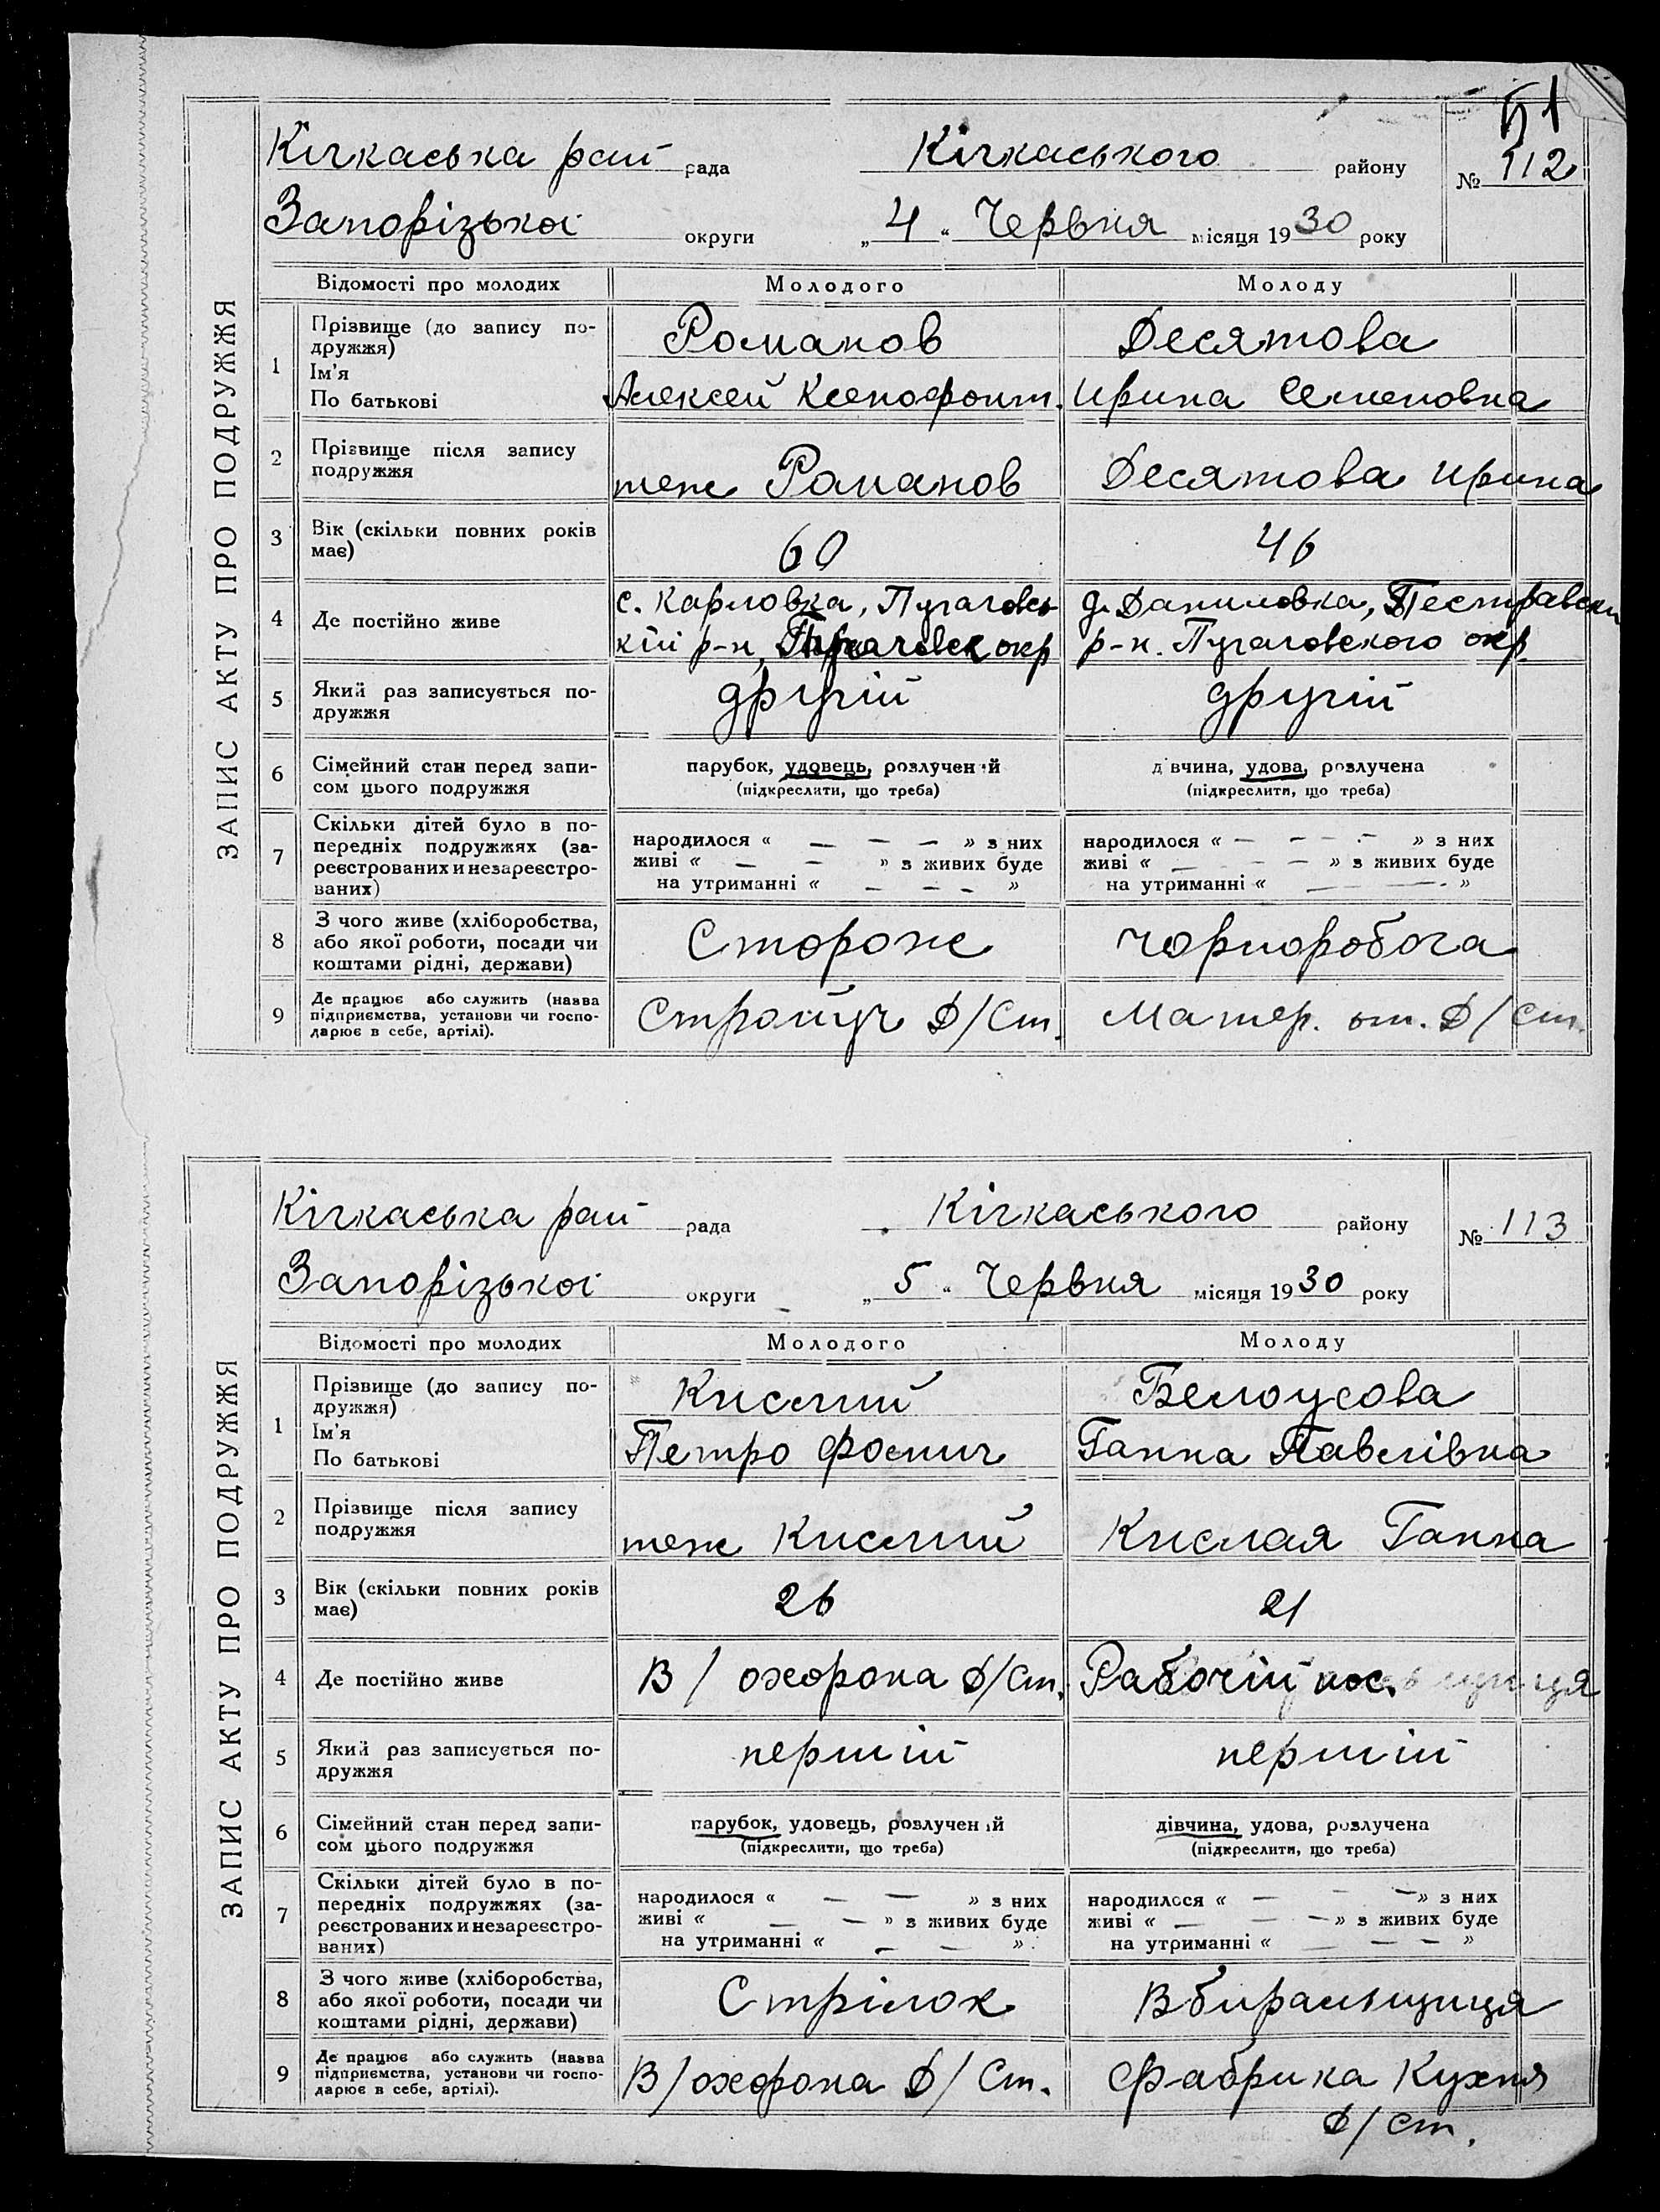 51
Кічкаська рай рада Кічкаського району № 112
Запорізької округи „ 4 “ Червня місяця 1930 року
ЗАПИС АКТУ ПРО ПОДРУЖЖЯ
Відомості про молодих Молодого Молоду
1 Прізвище (до запису по-
дружжя) Романов Десятова
Ім'я
По батькові Алексей Ксенофонт. Ирина Семеновна
2 Прізвище після запису
подружжя теж Романов Десятова Ирина
3 Вік (скільки повних років
має) 60 46
4 Де постійно живе с. Карловка, Пугачовсь- д. Даниловка, Пестравски
кій р-н, окр р-н. Пугачовского окр.
5 Який раз записується по-
дружжя другій другій
6 Сімейний стан перед запи-
сом цього подружжя парубок, удовець, розлучений дівчина, удова, розлучена
(підкреслити, що треба) (підкреслити, що треба)
7 Скільки дітей було в по-
передніх подружжях (за-
реєстрованих и незареєстро-
ваних) народилося « — — — » з них народилося « — — — » з них
живі « — — » з живих буде живі « — — » з живих буде
на утриманні « — — — » на утриманні « — — »
8 З чого живе (хліборобства,
або якої роботи, посади чи
коштами рідні, держави) Сторож чорнороботa
9 Де працює або служить (назва
підприємства, установи чи госпо-
дарює в себе, артілі). Стройуч Д/Ст. Матер. от. Д/Ст.
Кічкаська рай рада Кічкаського району № 113
Запорізької округи „ 5 “ Червня місяця 1930 року
ЗАПИС АКТУ ПРО ПОДРУЖЖЯ
Відомості про молодих Молодого Молоду
1 Прізвище (до запису по-
дружжя) Кислий Белоусова
Ім'я
По батькові Петро Фомич Ганна Павлівна
2 Прізвище після запису
подружжя теж Кислий Кислая Ганна
3 Вік (скільки повних років
має) 26 21
4 Де постійно живе В/охорона Д/Ст. Рабочій пос.
5 Який раз записується по-
дружжя першій першій
6 Сімейний стан перед запи-
сом цього подружжя парубок, удовець, розлучений дівчина, удова, розлучена
(підкреслити, що треба) (підкреслити, що треба)
7 Скільки дітей було в по-
передніх подружжях (за-
реєстрованих и незареєстро-
ваних) народилося « — — » з них народилося « — — — » з них
живі « — — » з живих буде живі « — — — » з живих буде
на утриманні « — — » на утриманні « — — — »
8 З чого живе (хліборобства,
або якої роботи, посади чи
коштами рідні, держави) Стрілок Вбиральщиця
9 Де працює або служить (назва
підприємства, установи чи госпо-
дарює в себе, артілі). В/охорона Д/Ст. Фабрика Кухня
Д/ст.